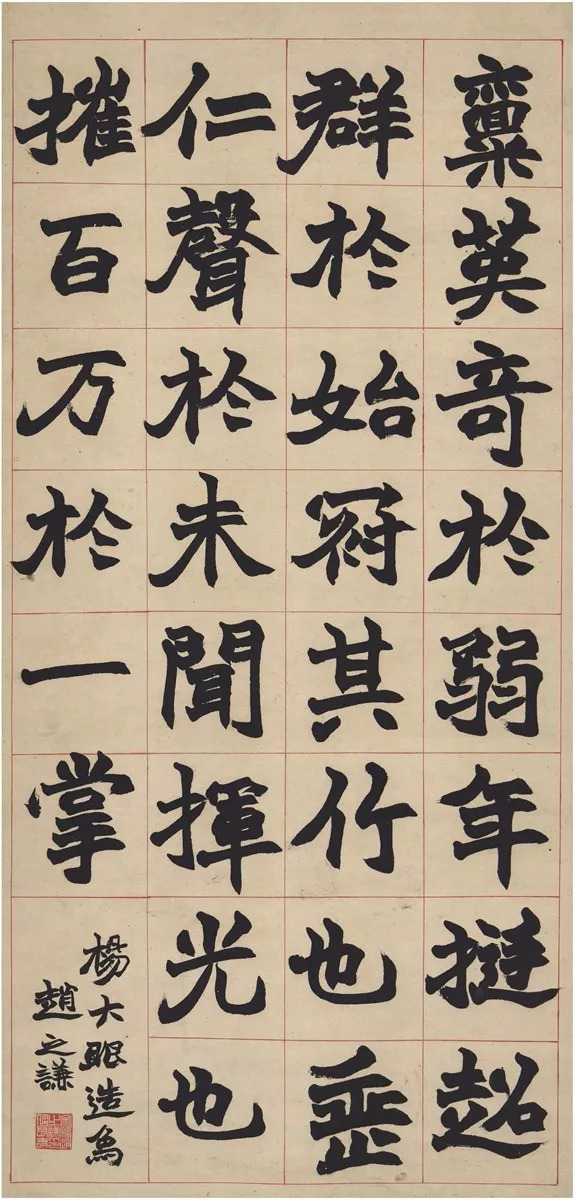 稟英竒於弱年挺超
群於始冠其行也垂
仁聲於未聞揮光也
摧百万於一掌
楊大眼造象
趙之謙